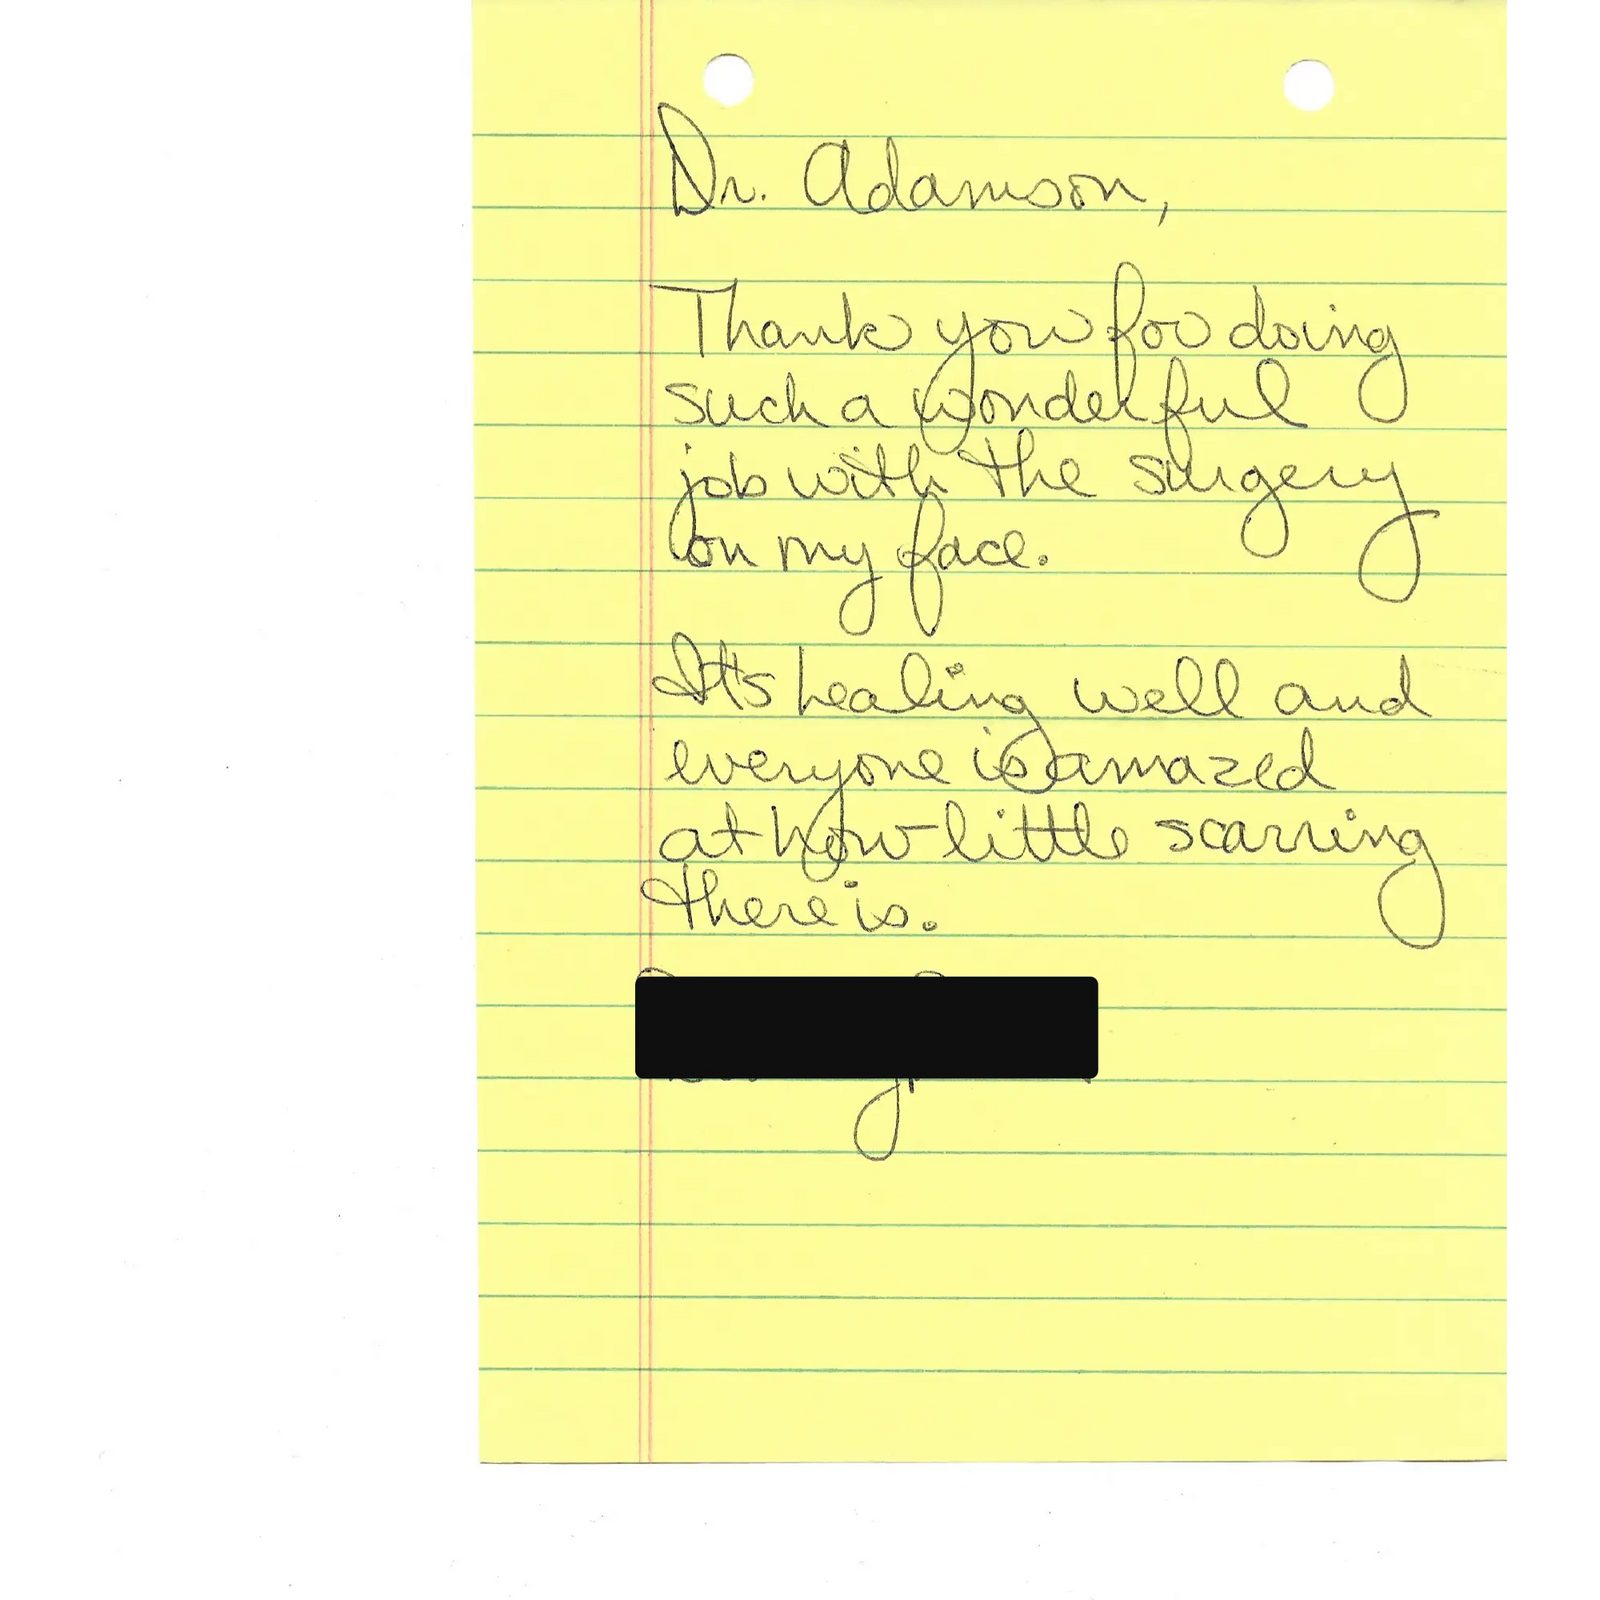 Dr. Adamson,
Thank you for doing
such a wonderful
job with the surgery
on my face.
It's healing well and
everyone is amazed
at how little scarring
there is.